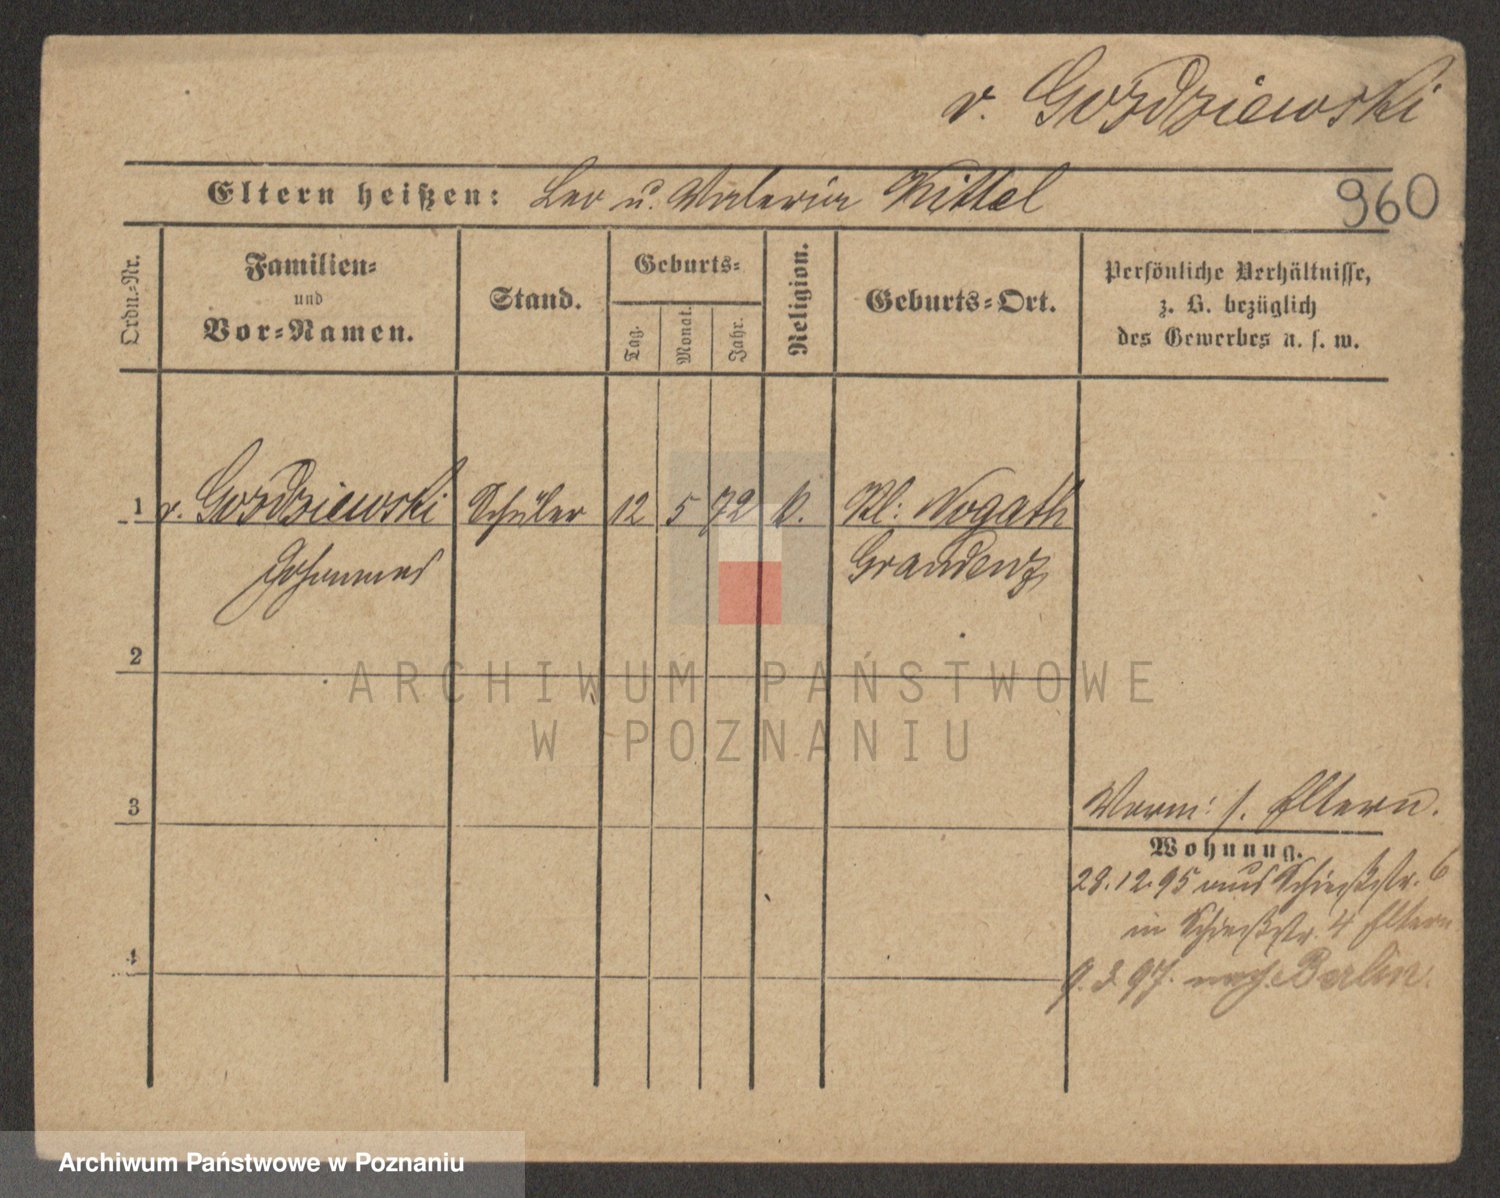 v. Gozdziewski
Eltern heißen: Leo u. Valeria Kittel
960
Ordn.-Nr.
Familien-
und
Vor-Namen.
Stand.
Geburts-
Tag.
Monat.
Jahr.
Religion.
Geburts-Ort.
Persönliche Verhältnisse,
z. B. bezüglich
des Gewerbes u. s. w.
1 v. Gozdziewski Schüler 12 5 72 k. Kl: Nogath
Johannes Graudenz
2
3
Vorm: s. Eltern.
Wohnung.
28.12.95 aus Schießstr. 6
in Schießstr. 4 Eltern
4
9.3.97. nach Berlin.
ARCHIWUM PAŃSTWOWE
W POZNANIU
Archiwum Państwowe w Poznaniu